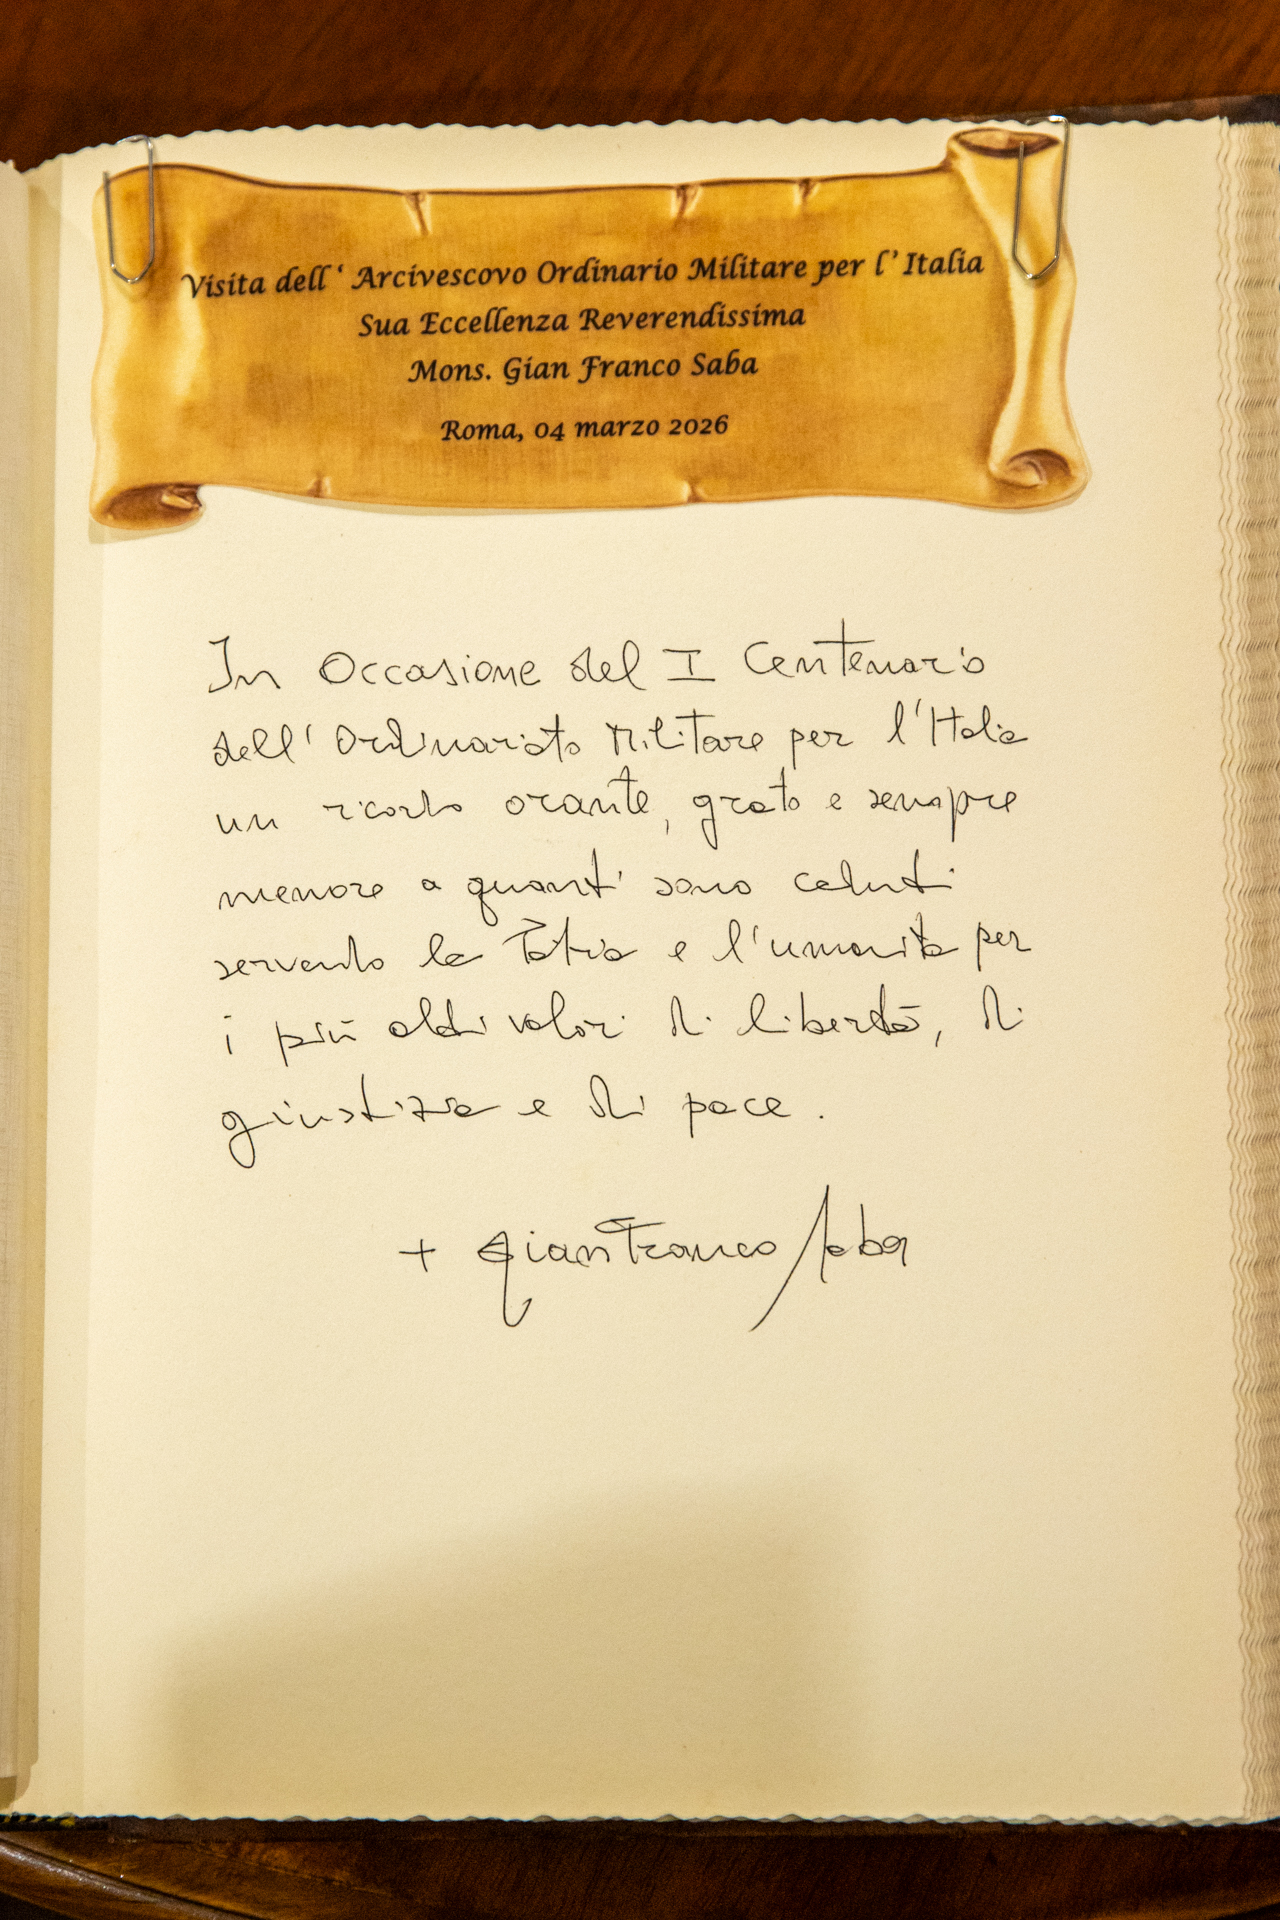 Visita dell‘ Arcivescovo Ordinario Militare per l’Italia
Sua Eccellenza Reverendissima
Mons. Gian Franco Saba
Roma, 04 marzo 2026
In Occasione del I Centenario
dell'Ordinariato Militare per l'Italia
un ricordo orante, grato e sempre
memore a quanti sono caduti
servendo la Patria e l'umanità per
i più alti valori di libertà, di
giustizia e di pace.
+ Gian Franco Saba